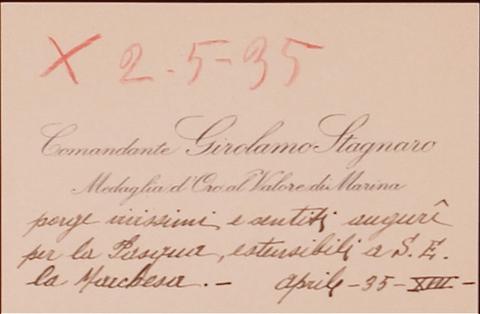 X 2-5-35
Comandante Girolamo Stagnaro
Medaglia d'Oro al Valore di Marina
porge vivissimi e sentiti augurî
per la Pasqua, estensibili a S. E.
la Marchesa. - Aprile - 35 - XIII -